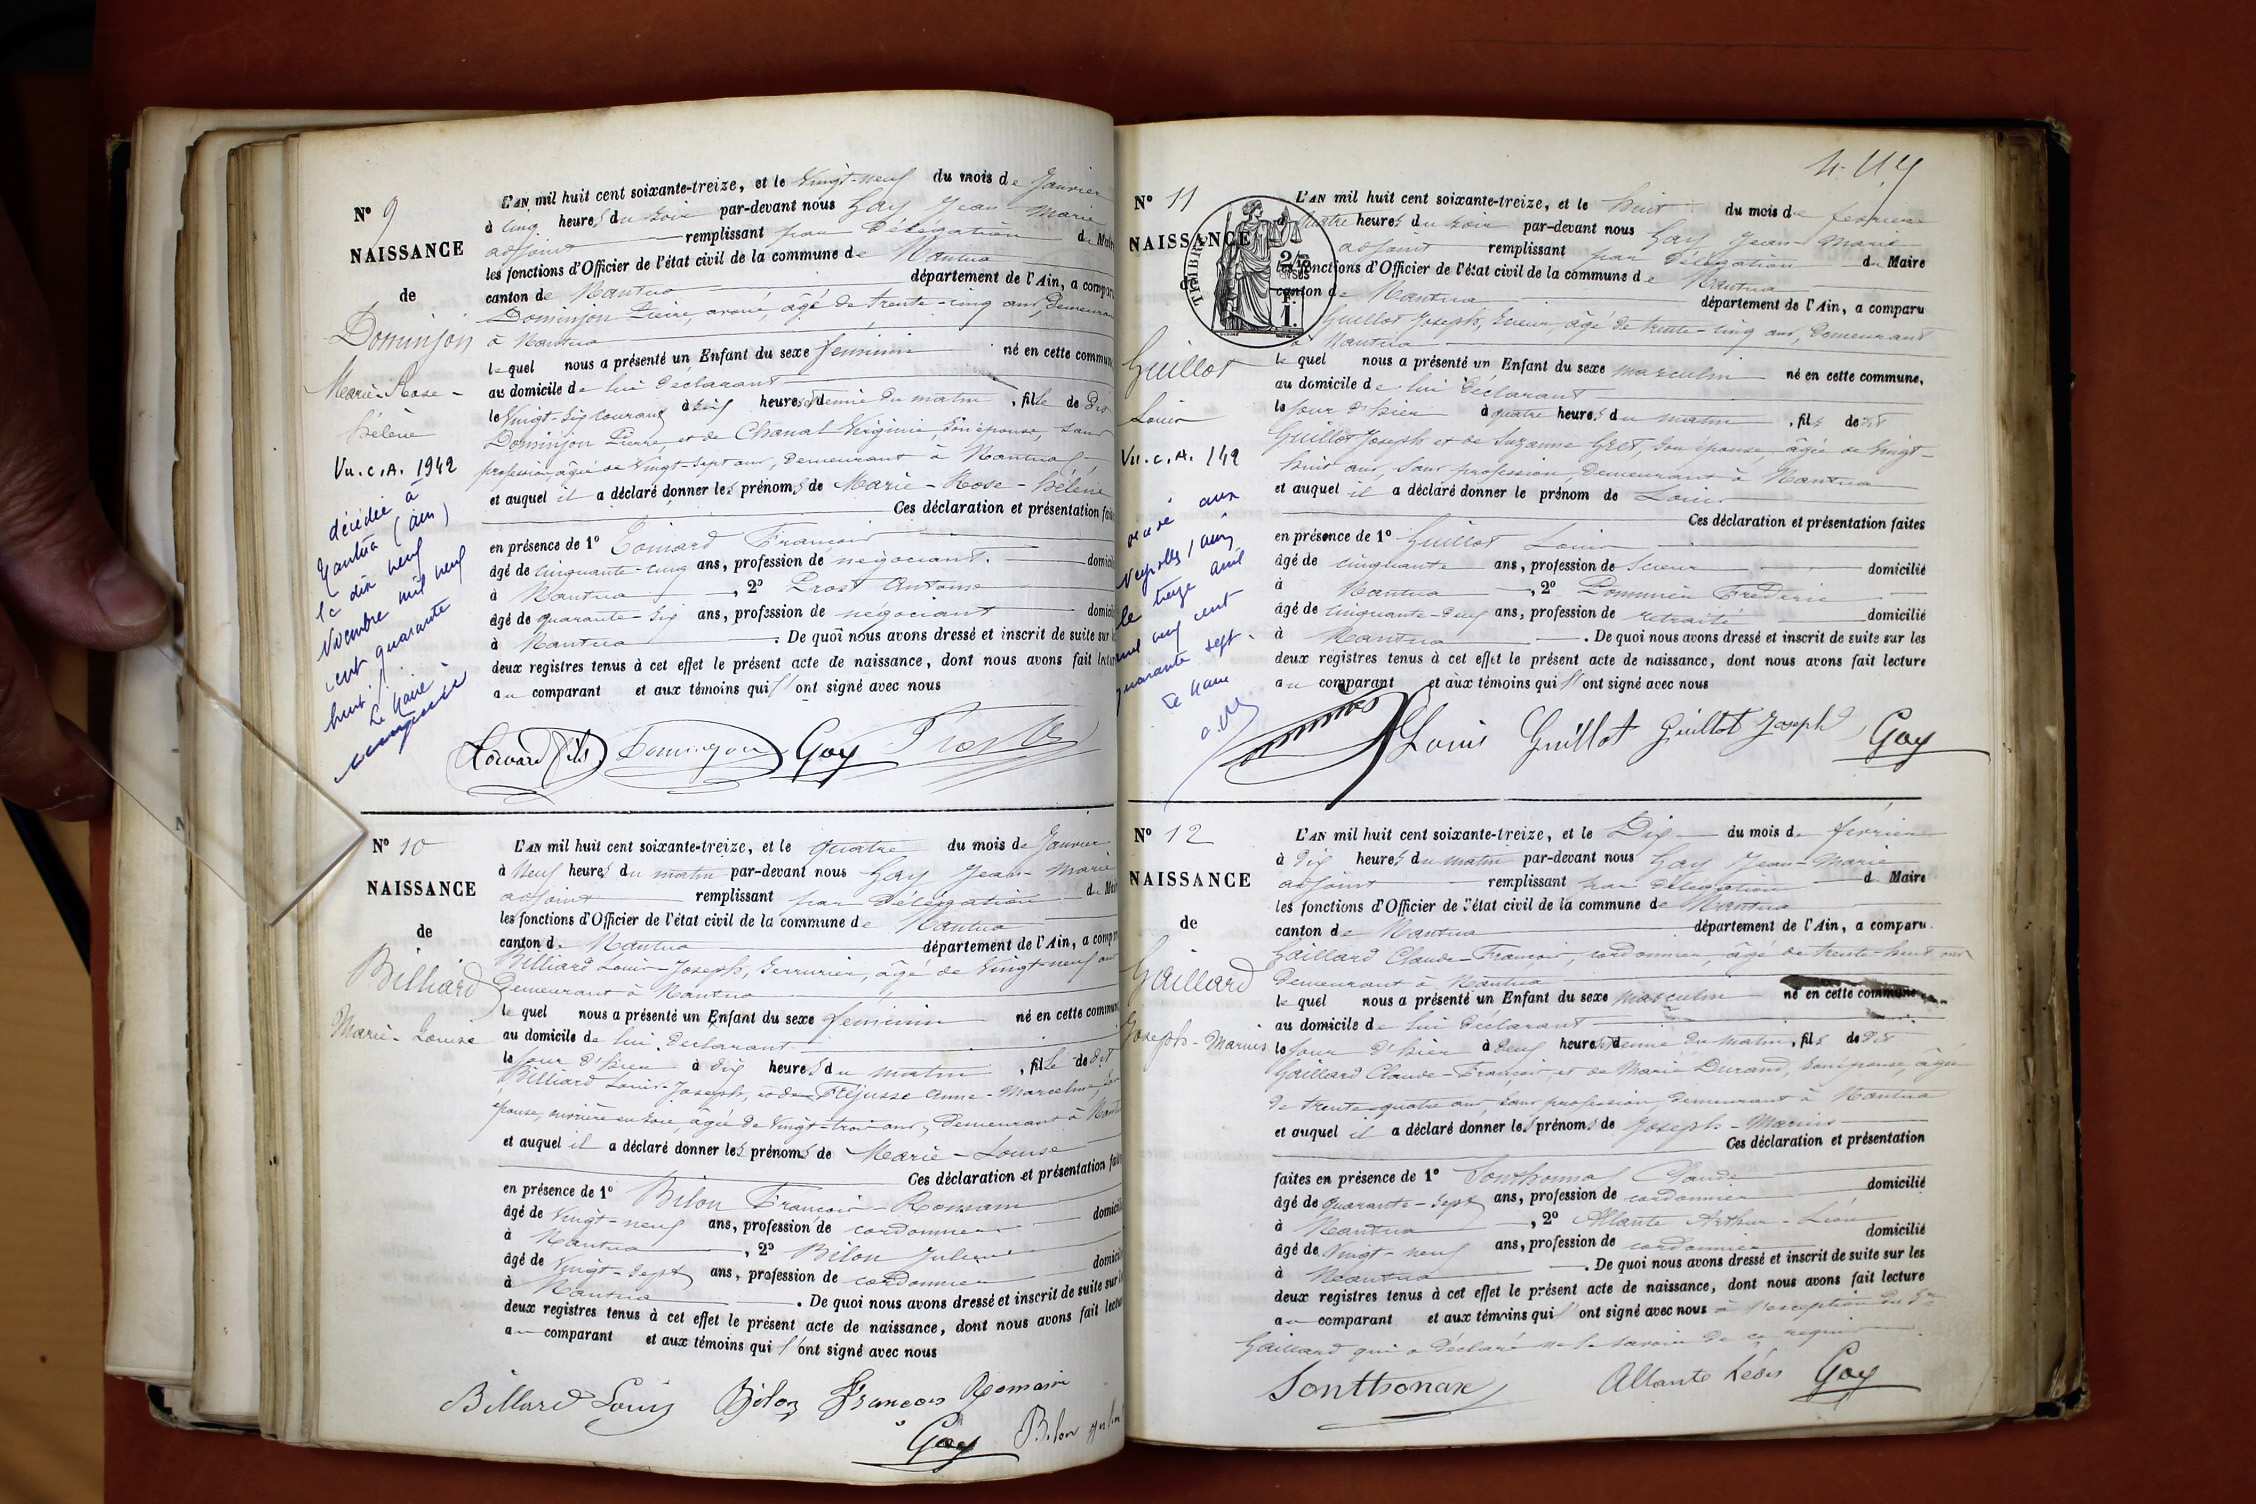 N° 9
NAISSANCE
de
Dominjon
Marie-Rose-
hélène
Vu. C. A. 1942
décédée à
Nantua (Ain)
le dix neuf
Novembre mil neuf
cent quarante
huit.
Le Maire
L'AN mil huit cent soixante-treize, et le Vingt-neuf du mois de Janvier
à Cinq heures du soir par-devant nous Gay Jean Marie
adjoint remplissant par Délégation du Maire
les fonctions d'Officier de l'état civil de la commune de Nantua
canton de Nantua département de l'Ain, a comparu
Dominjon Pierre, avoué, âgé de trente-cinq ans, Demeurant
à Nantua
lequel nous a présenté un Enfant du sexe féminin né en cette commune
au domicile de lui déclarant
le Vingt-six courant à six heures et demie du matin, fille de dit
Dominjon Pierre, et de Chanal Virginie, son épouse, sans
profession, âgée de Vingt-sept ans, Demeurant à Nantua
et auquel il a déclaré donner les prénoms de Marie-Rose-hélène
Ces déclaration et présentation faites
en présence de 1° François
âgé de Cinquante-cinq ans, profession de négociant. domicilié
à Nantua, 2° Prost Antoine
âgé de quarante-six ans, profession de négociant domicilié
à Nantua. De quoi nous avons dressé et inscrit de suite sur les
deux registres tenus à cet effet le présent acte de naissance, dont nous avons fait lecture
au comparant et aux témoins qui l'ont signé avec nous
Dominjon Gay Prost
N° 10
NAISSANCE
de
Billiard
Marie-Louise
L'AN mil huit cent soixante-treize, et le quatre du mois de Janvier
à Neuf heures du matin par-devant nous Gay Jean-Marie
adjoint remplissant par Délégation du Maire
les fonctions d'Officier de l'état civil de la commune de Nantua
canton de Nantua département de l'Ain, a comparu
Billiard Louis-Joseph, Serrurier, âgé de Vingt-neuf ans
Demeurant à Nantua
lequel nous a présenté un Enfant du sexe féminin né en cette commune
au domicile de lui Déclarant
le Jour d'hier à dix heures du matin, fille de dit
Billiard Louis-Joseph, et de Fréjusse Anne-Marceline, son
épouse, ouvrière en soie, âgée de Vingt-trois ans, Demeurant à Nantua
et auquel il a déclaré donner les prénoms de Marie-Louise
Ces déclaration et présentation faites
en présence de 1° Bilon François-Romain
âgé de Vingt-neuf ans, profession de cordonnier domicilié
à Nantua, 2° Bilon
âgé de Vingt-sept ans, profession de cordonnier domicilié
à Nantua. De quoi nous avons dressé et inscrit de suite sur les
deux registres tenus à cet effet le présent acte de naissance, dont nous avons fait lecture
au comparant et aux témoins qui l'ont signé avec nous
Billard Louis Bilon François Romain
Gay Bilon
N° 11
NAISSANCE
de
TIMBRE
Guillot
Louis
Vu. C. A. 142
décédé aux
Neyrolles (Ain)
le treize avril
mil neuf cent
quarante sept.
Le Maire
L'AN mil huit cent soixante-treize, et le huit du mois de février
à quatre heures du soir par-devant nous Gay Jean-Marie
adjoint remplissant par Délégation du Maire
les fonctions d'Officier de l'état civil de la commune de Nantua
canton de Nantua département de l'Ain, a comparu
Guillot Joseph, Scieur, âgé de trente-cinq ans, Demeurant
à Nantua
lequel nous a présenté un Enfant du sexe masculin né en cette commune,
au domicile de lui Déclarant
le Jour d'hier à quatre heures du matin, fils de dit
Guillot Joseph et de Suzanne Gret, son épouse, âgée de Vingt-
huit ans, sans profession, Demeurant à Nantua
et auquel il a déclaré donner le prénom de Louis
Ces déclaration et présentation faites
en présence de 1° Guillot Louis
âgé de cinquante ans, profession de Scieur domicilié
à Nantua, 2° Frédéric
âgé de Cinquante-deux ans, profession de retraité domicilié
à Nantua. De quoi nous avons dressé et inscrit de suite sur les
deux registres tenus à cet effet le présent acte de naissance, dont nous avons fait lecture
au comparant et aux témoins qui l'ont signé avec nous
Louis Guillot Guillot Joseph Gay
N° 12
NAISSANCE
de
Gaillard
Joseph-Marius
L'AN mil huit cent soixante-treize, et le Dix du mois de février
à dix heures du matin par-devant nous Gay Jean-Marie
adjoint remplissant par délégation d Maire
les fonctions d'Officier de l'état civil de la commune de Nantua
canton de Nantua département de l'Ain, a comparu.
Gaillard Claude-François, cordonnier, âgé de trente-huit ans
Demeurant à Nantua
lequel nous a présenté un Enfant du sexe masculin né en cette commune
au domicile de lui Déclarant
le Jour d'hier à deux heures et demie du matin, fils de dit
Gaillard Claude-François, et de Marie Durand, son épouse, âgée
de trente-quatre ans, sans profession, demeurant à Nantua
et auquel il a déclaré donner les prénoms de Joseph-Marius
Ces déclaration et présentation
faites en présence de 1° Sonthonnax Claude
âgé de quarante-sept ans, profession de cordonnier domicilié
à Nantua, 2° Allante Arthur-Léon
âgé de Vingt-neuf ans, profession de cordonnier domicilié
à Nantua. De quoi nous avons dressé et inscrit de suite sur les
deux registres tenus à cet effet le présent acte de naissance, dont nous avons fait lecture
au comparant et aux témoins qui l'ont signé avec nous à l'exception du Sr
Gaillard qui a déclaré ne le savoir de ce requis
Sonthonax Allante Léon Gay